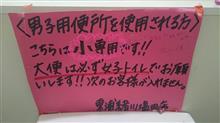 〈男子用便所を使用される方〉
こちらは小専用です!!
大便は必ず女子トイレでお願
いします!!次のお客様が入れません。